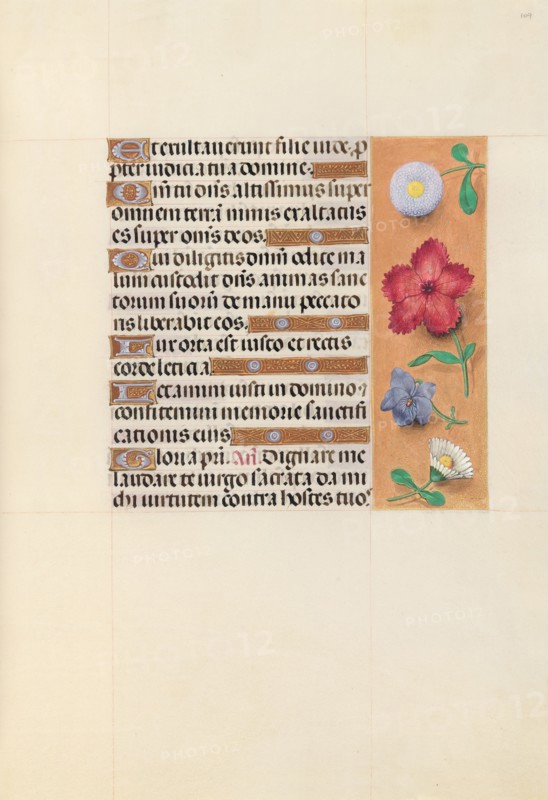 Et exultaverunt filie iude, p
pter iudicia tua domine.
Qm̄ tu dn̄s altissimus super
omnem terrā nimis exaltatus
es super om̄s deos.
Qui diligitis dn̄m odite ma
lum custodit dn̄s animas sanc
torum suorū de manu peccato
ris liberabit eos.
Lux orta est iusto et rectis
corde leticia
Letamini iusti in domino
confitemini memorie sanctifi
cationis eius
Gloria pri. An̄. Dignare me
laudare te virgo sacrata da mi
chi virtutem contra hostes tuos
PHOTO12